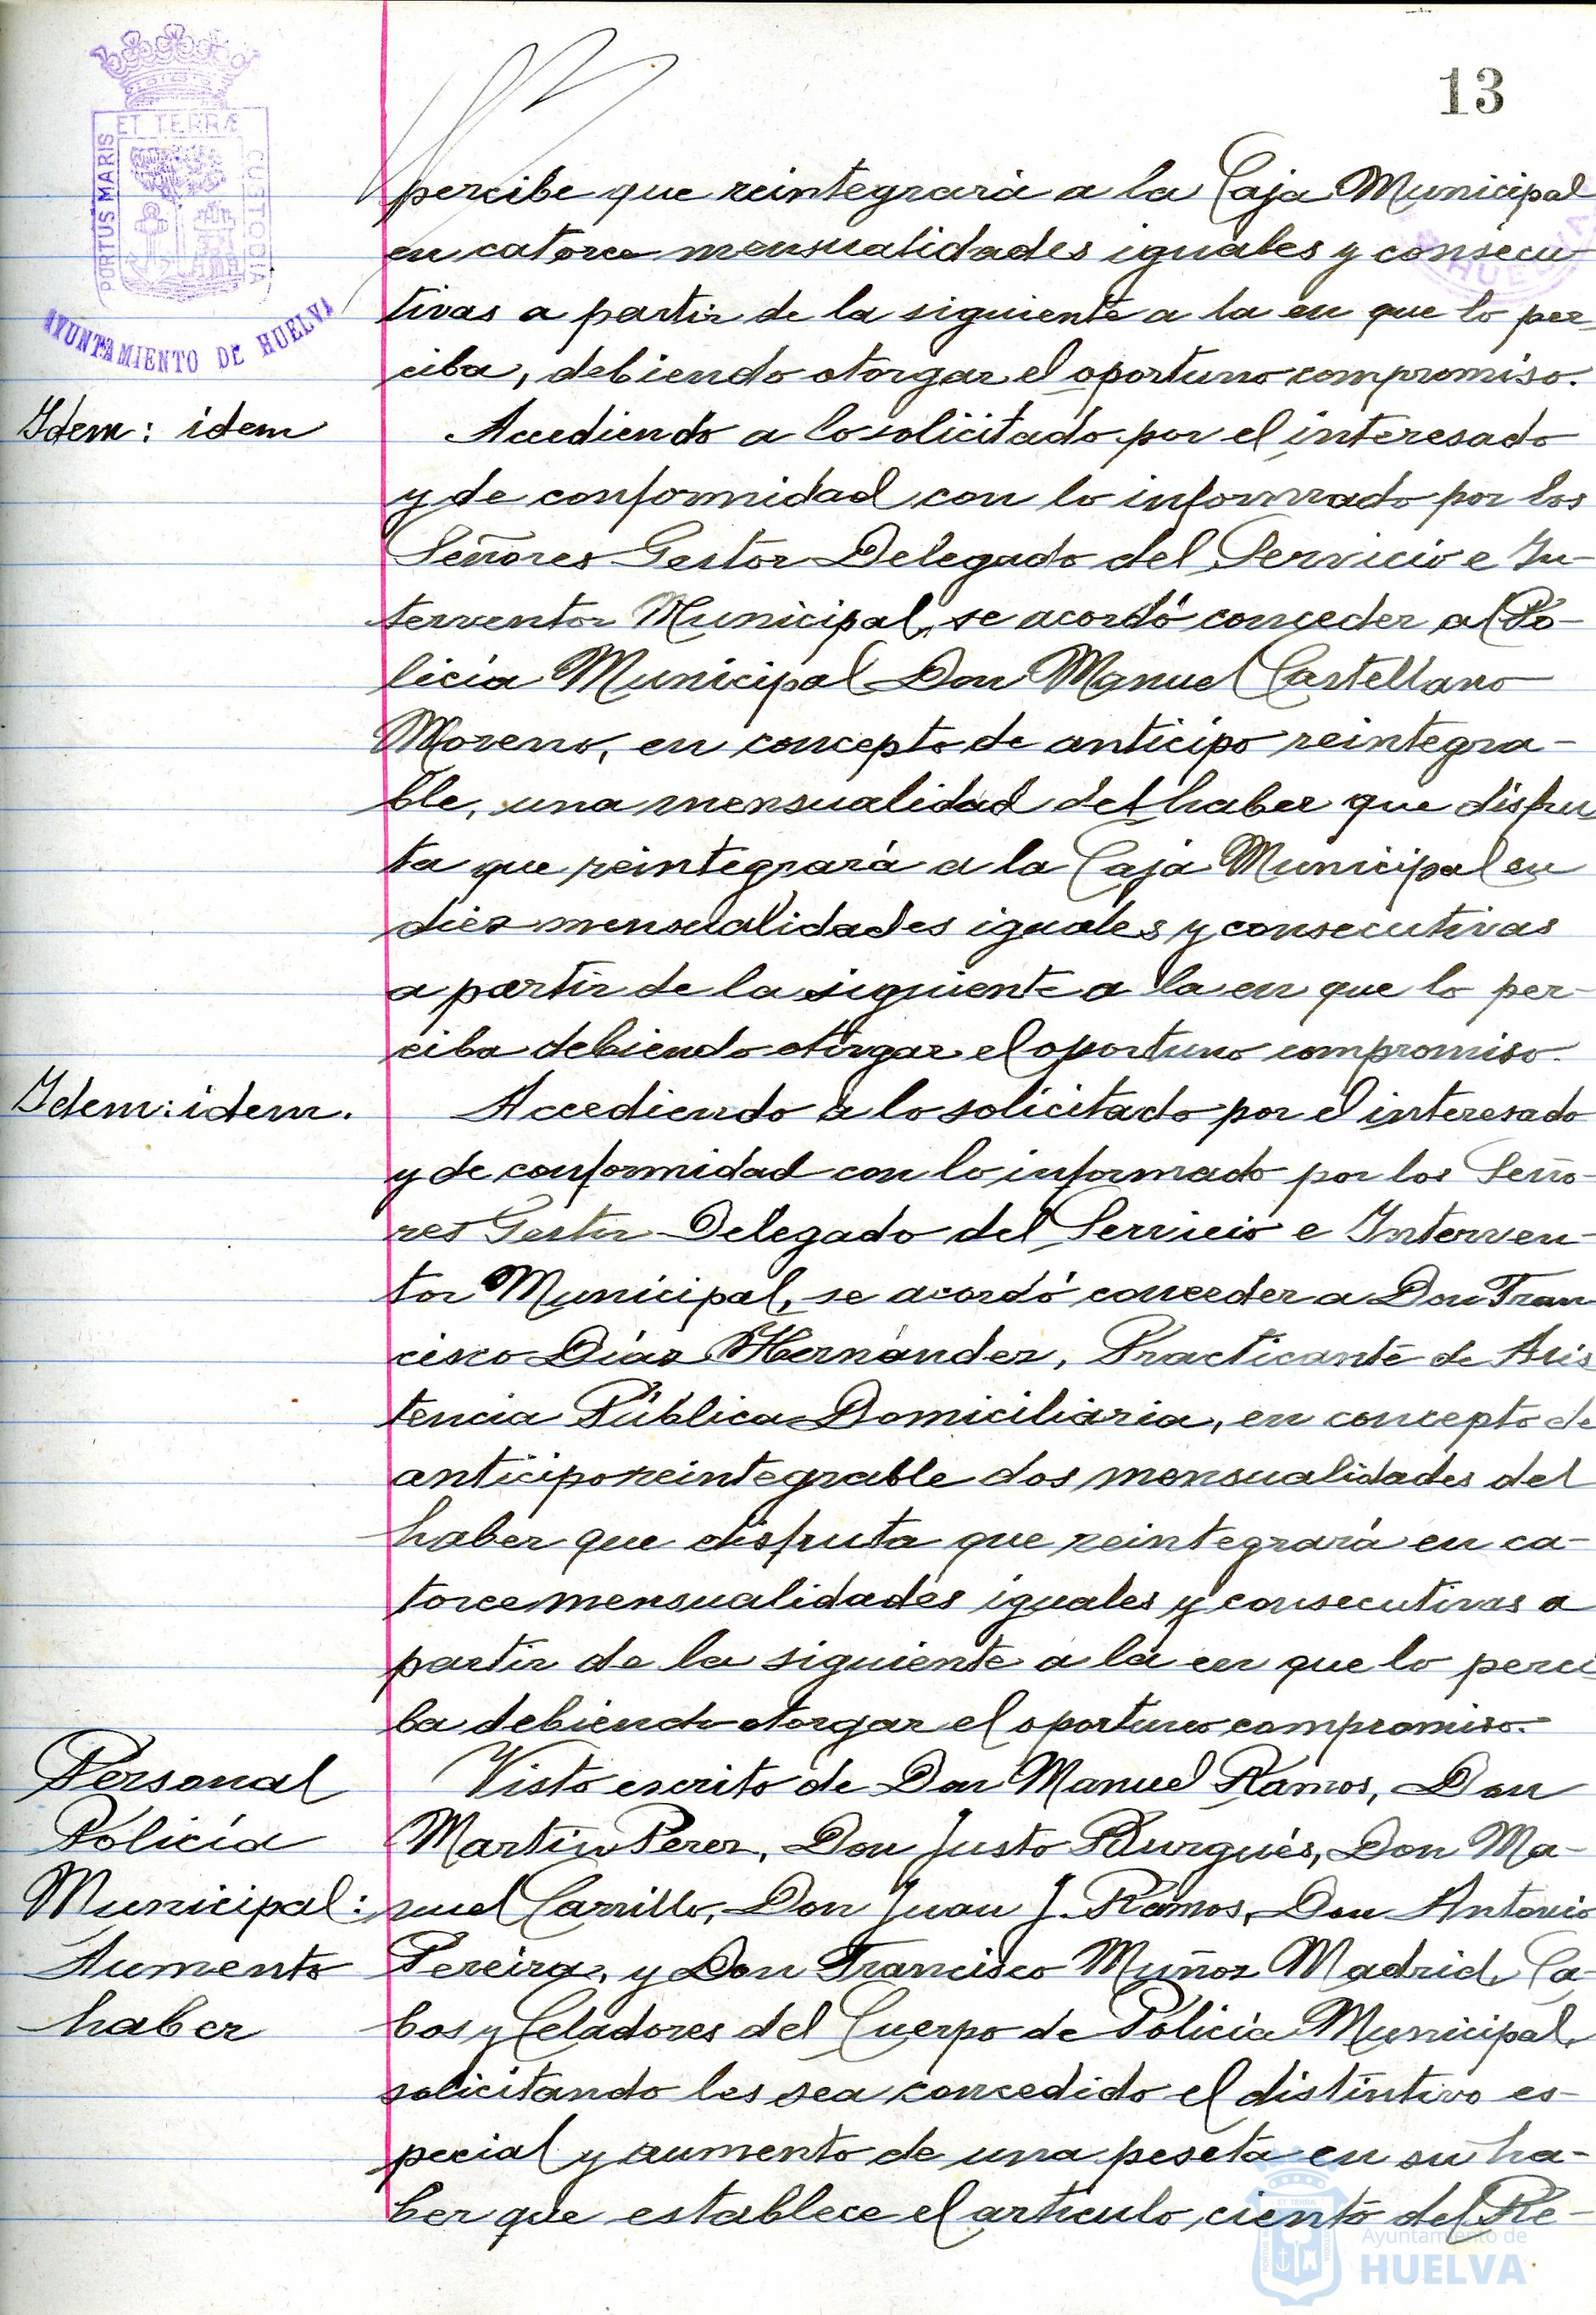 13
PORTUS MARIS ET TERRÆ CUSTODIA
AYUNTAMIENTO DE HUELVA
HUELVA
percibe que reintegrará a la Caja Municipal
en catorce mensualidades iguales y consecu-
tivas a partir de la siguiente a la en que lo per-
ciba, debiendo otorgar el oportuno compromiso.
Idem: idem
Accediendo a lo solicitado por el interesado
y de conformidad con lo informado por los
Señores Gestor Delegado del Servicio e In-
terventor Municipal, se acordó conceder al Po-
licía Municipal Don Manuel Castellano
Moreno, en concepto de anticipo reintegra-
ble, una mensualidad del haber que disfru
ta que reintegrará a la Caja Municipal en
diez mensualidades iguales y consecutivas
a partir de la siguiente a la en que lo per-
ciba debiendo otorgar el oportuno compromiso.
Idem: idem.
Accediendo a lo solicitado por el interesado
y de conformidad con lo informado por los Seño-
res Gestor Delegado del Servicio e Interven-
tor Municipal, se acordó conceder a Don Fran
cisco Díaz Hernández, Practicante de Asis
tencia Pública Domiciliaria, en concepto de
anticipo reintegrable dos mensualidades del
haber que disfruta que reintegrará en ca-
torce mensualidades iguales y consecutivas a
partir de la siguiente a la en que lo perci
ba debiendo otorgar el oportuno compromiso.
Personal
Policía
Municipal:
Aumento
haber
Visto escrito de Don Manuel Ramos, Don
Martín Perez, Don Justo Burgués, Don Ma-
nuel Carrillo, Don Juan J. Ramos, Don Antonio
Pereira, y Don Francisco Muñoz Madrid, Ca-
bos y Celadores del Cuerpo de Policía Municipal,
solicitando les sea concedido el distintivo es-
pecial y aumento de una peseta en su ha-
ber que establece el artículo ciento del Re-
Ayuntamiento de
HUELVA